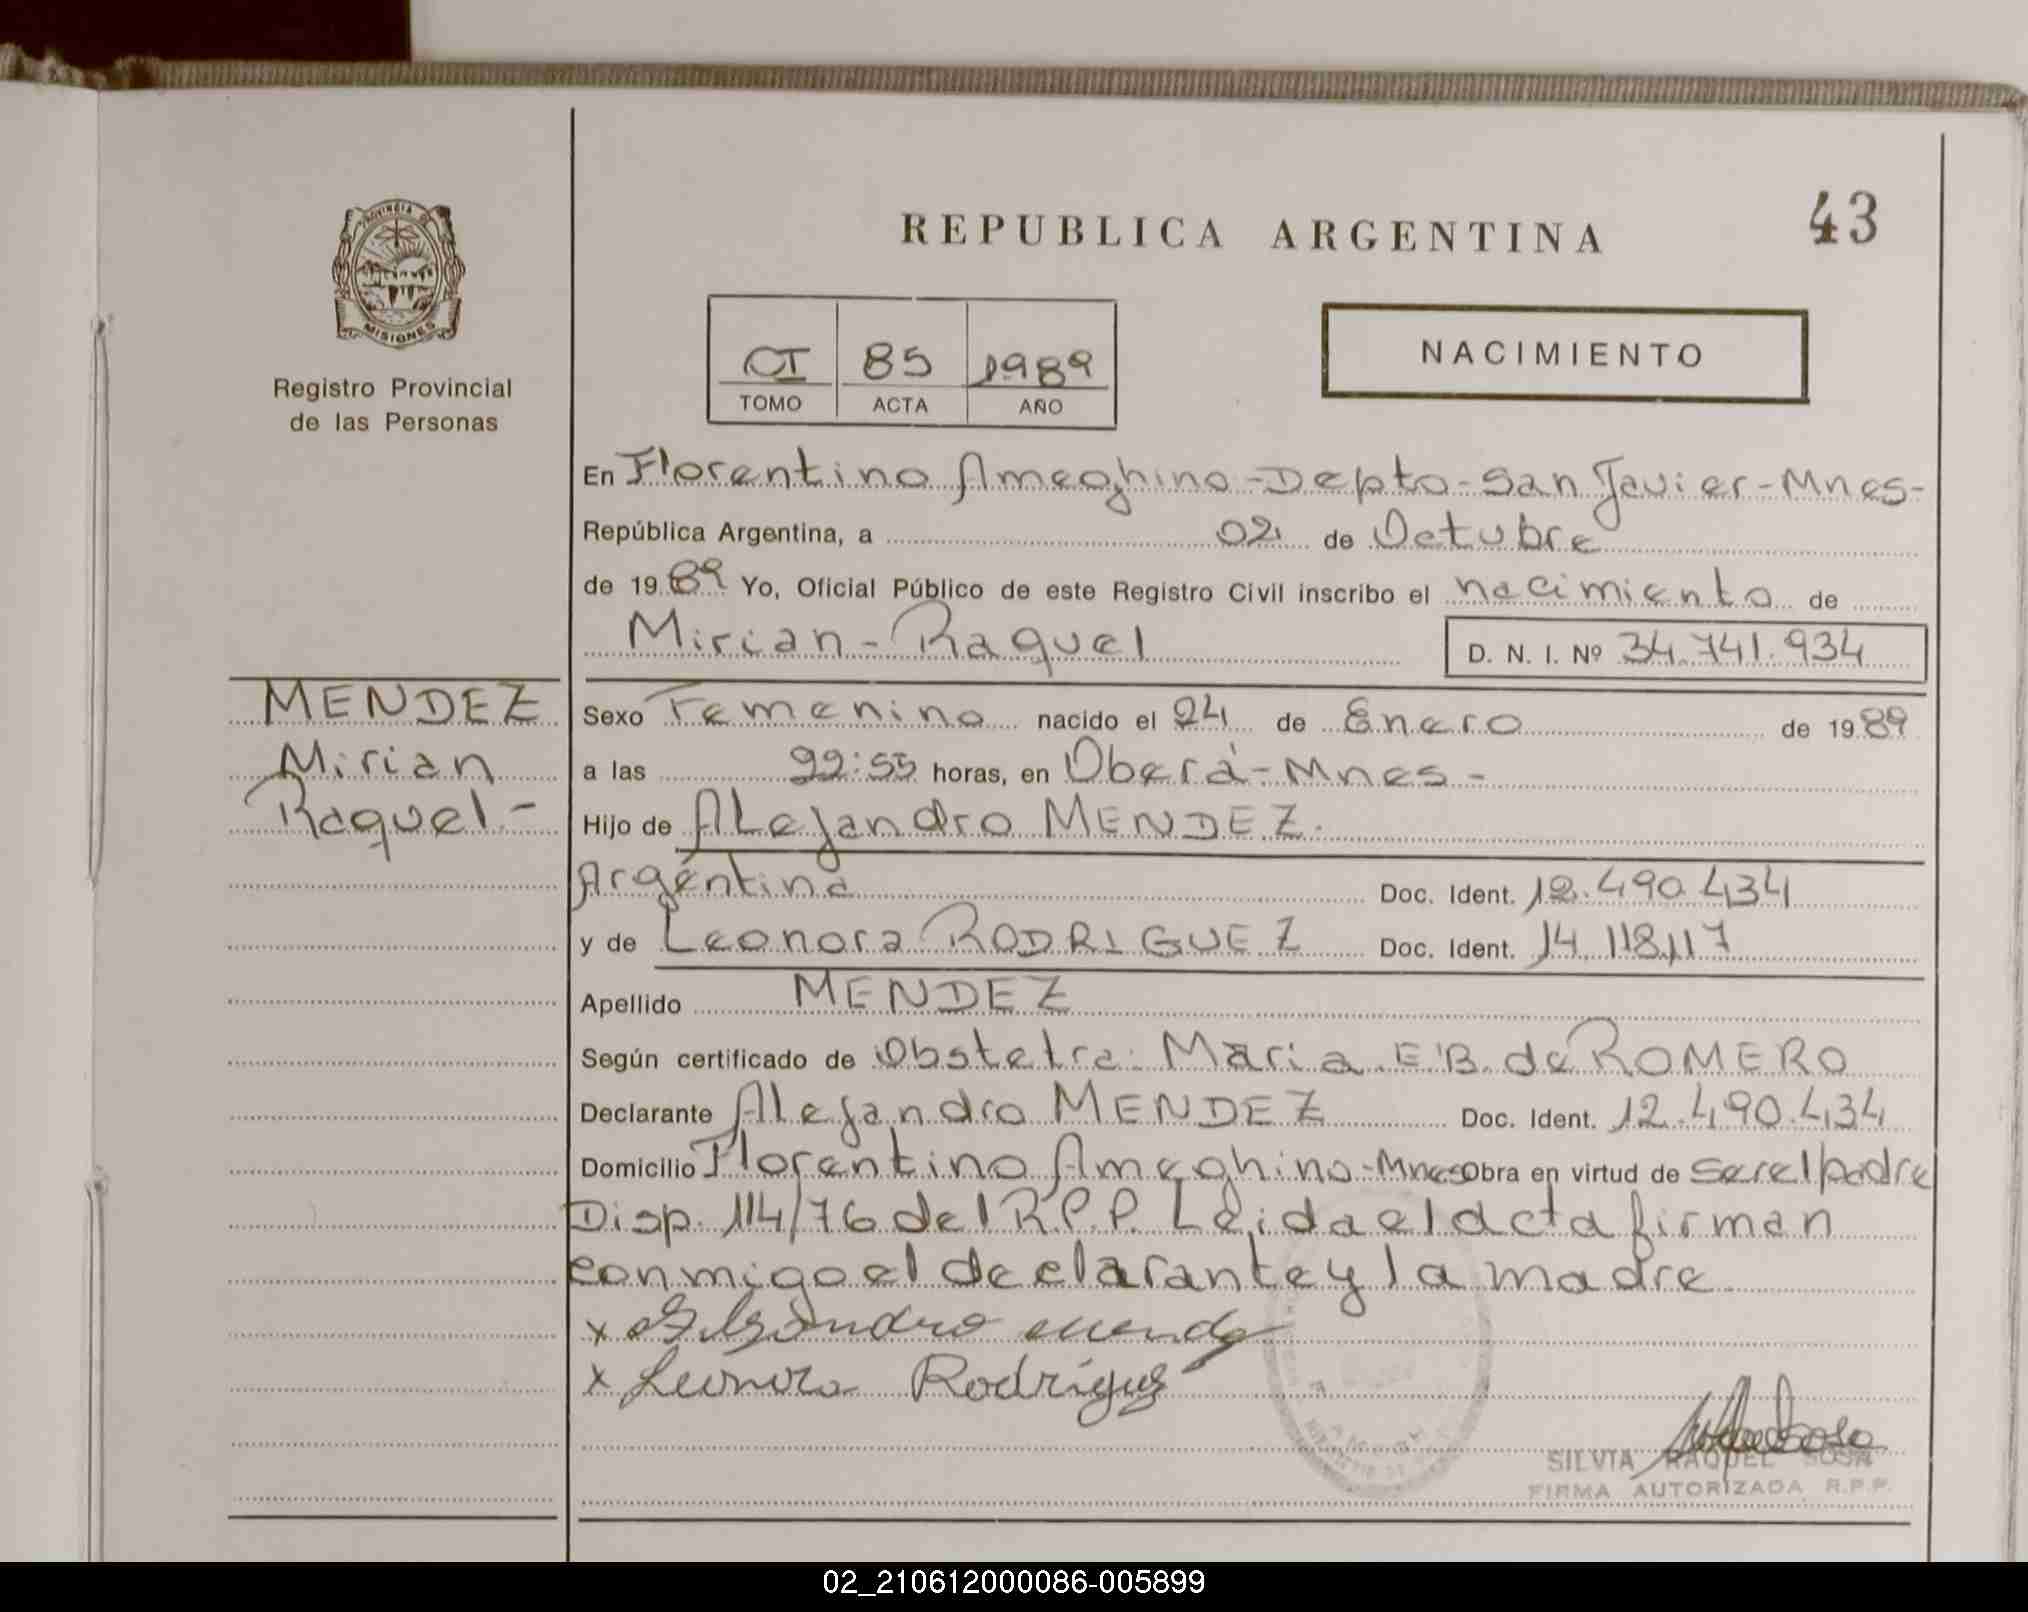 43
REPUBLICA ARGENTINA
PROVINCIA DE
MISIONES
Registro Provincial
de las Personas
NACIMIENTO
CI 85 1989
TOMO ACTA AÑO
En Florentino Ameghino - Depto - San Javier - Mnes -
República Argentina, a 02 de Octubre
de 1989 Yo, Oficial Público de este Registro Civil inscribo el nacimiento de
Mirian - Raquel D. N. I. Nº 34.741.934
MENDEZ
Mirian
Raquel -
Sexo Femenino nacido el 24 de Enero de 1989
a las 22:55 horas, en Oberá - Mnes -
Hijo de Alejandro MENDEZ.
Argentina Doc. Ident. 12.490.434
y de Leonora RODRIGUEZ Doc. Ident. 14.118.117
Apellido MENDEZ
Según certificado de Obstetra: Maria E.B. de ROMERO
Declarante Alejandro MENDEZ Doc. Ident. 12.490.434
Domicilio Florentino Ameghino - Mnes Obra en virtud de ser el padre
Disp. 114/76 del R.P.P. Leida el acta firman
conmigo el declarante y la madre
x Alejandro Mende
x Leonora Rodríguez
SILVIA RAQUEL SOSA
FIRMA AUTORIZADA R.P.P.
02_210612000086-005899